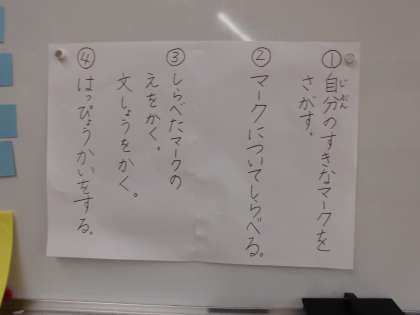 ①自分のすきなマークを
じぶん
さがす。
②マークについてしらべる。
③しらべたマークの
えをかく。
文しょうをかく。
④はっぴょうかいをする。